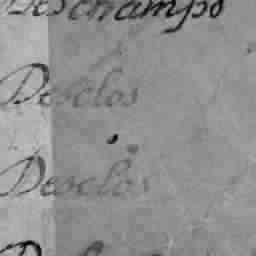 Deschamps
Desclos
Desclos